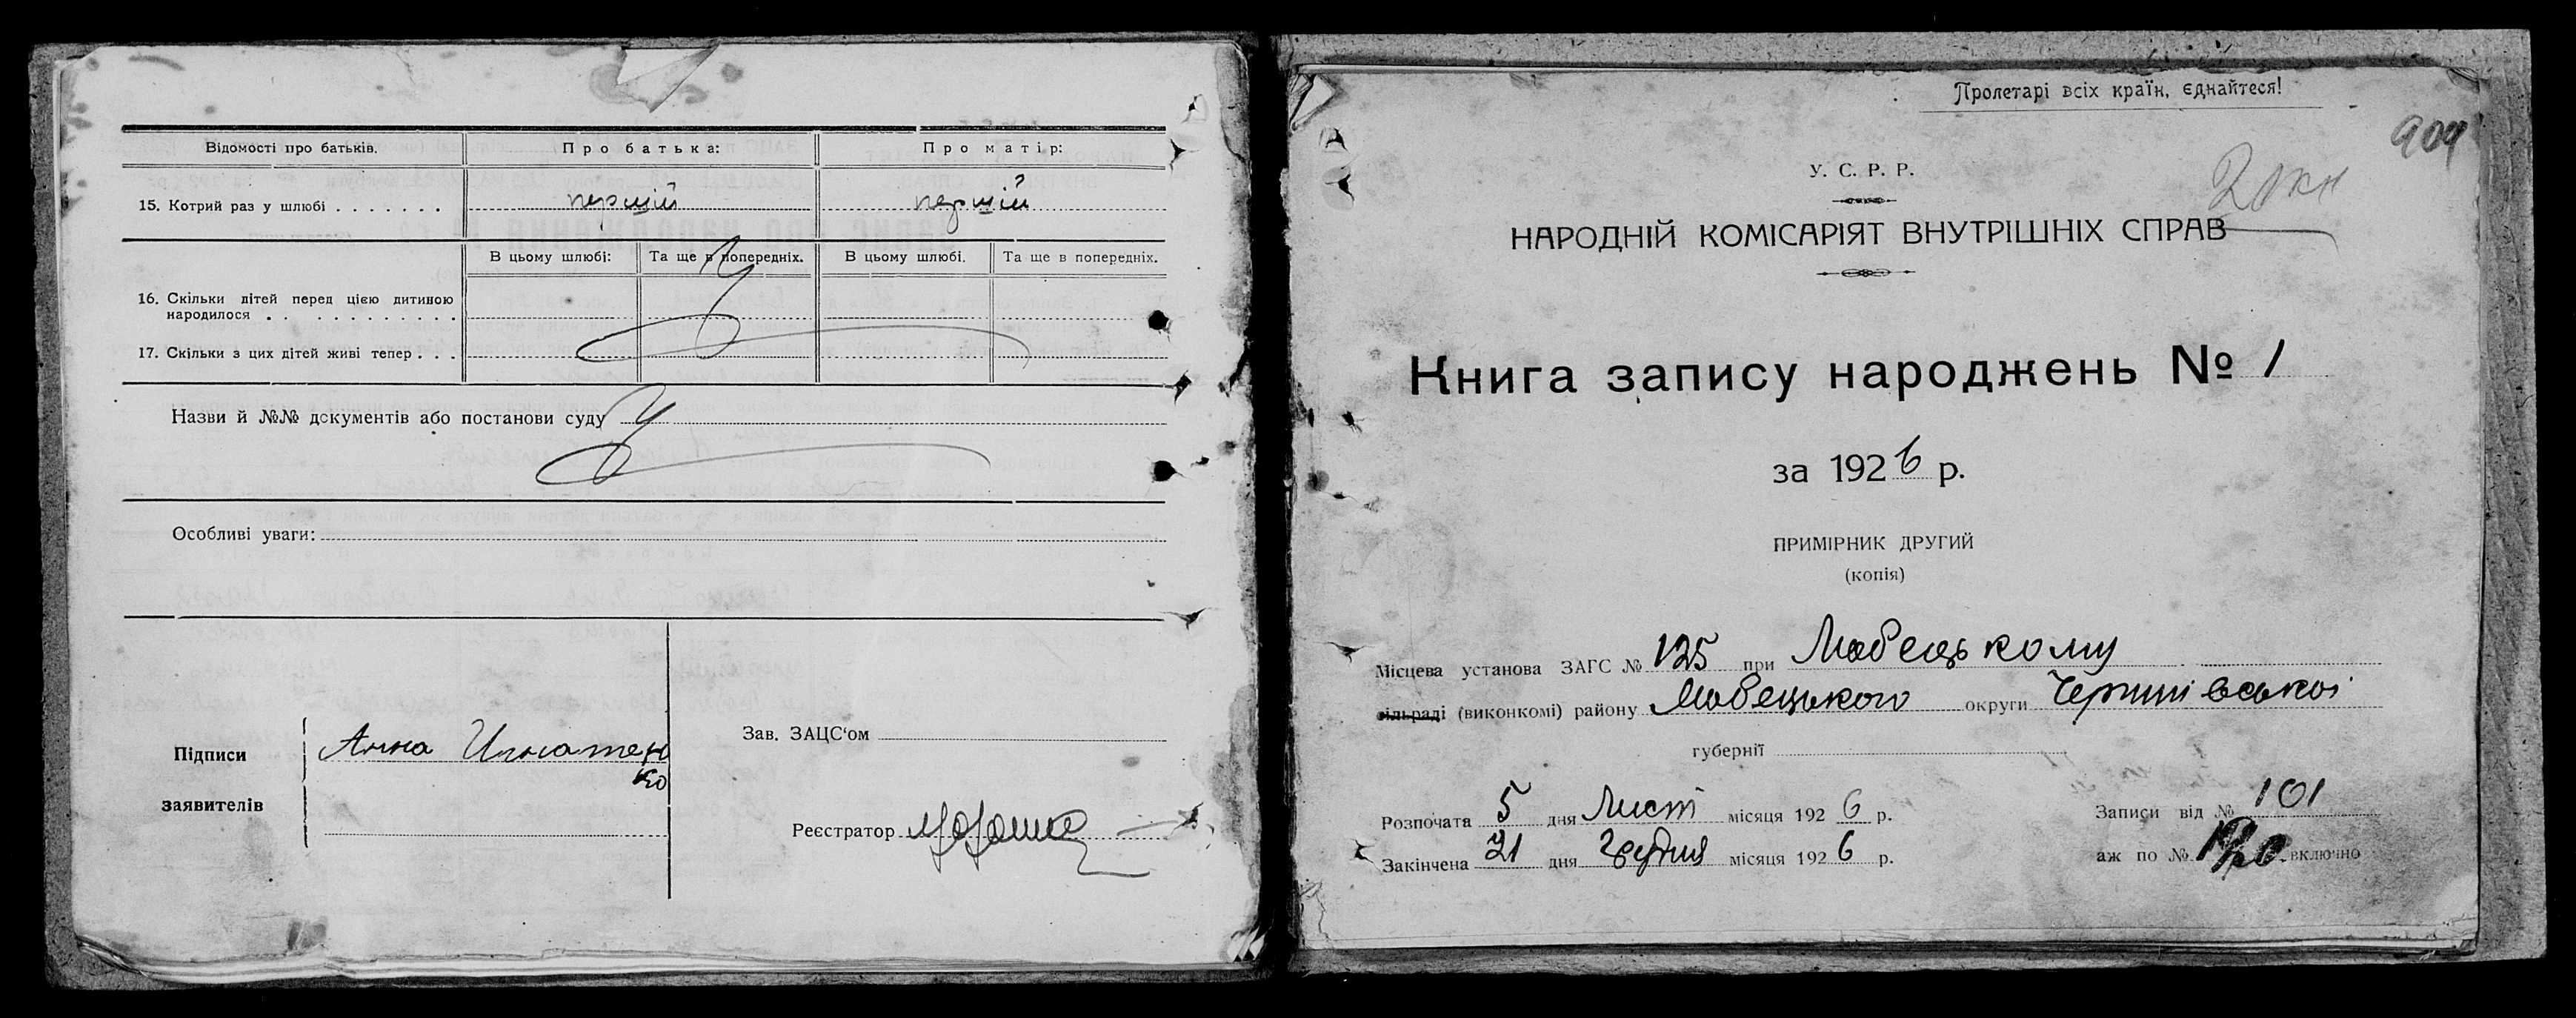 Відомості про батьків. Про батька: Про матір:
15. Котрий раз у шлюбі першій першій
В цьому шлюбі: Та ще в попередніх. В цьому шлюбі. Та ще в попередніх.
16. Скільки дітей перед цією дитиною
народилося
17. Скільки з цих дітей живі тепер
Назви й №№ документів або постанови суду
Особливі уваги:
Зав. ЗАЦС'ом
Підписи
заявителів
Анна Игнатен
ко
Реєстратор
Пролетарі всіх країн, єднайтеся!
904
У. С. Р. Р.
НАРОДНІЙ КОМІСАРІЯТ ВНУТРІШНІХ СПРАВ
Книга запису народжень № 1
за 1926 р.
ПРИМІРНИК ДРУГИЙ
(копія)
Місцева установа ЗАГС № 125 при Любецькому
сільраді (виконкомі) району Любецького округи Чернигівської
губернії
Розпочата 5 дня Лист місяця 1926 р.
Закінчена 21 дня Грудня місяця 1926 р.
Записи від № 101
аж по № 120 включно